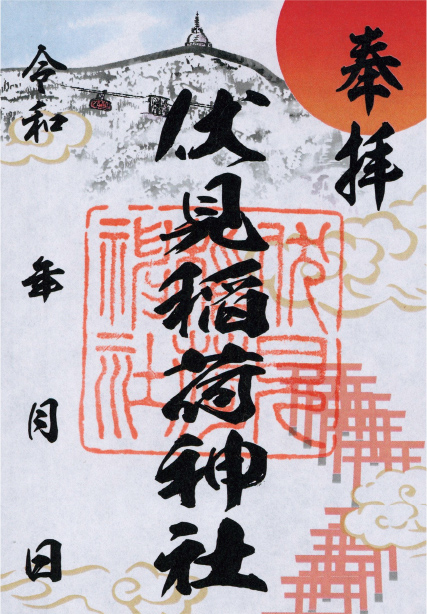 奉拝
伏見稲荷神社
令和 年 月 日
伏見稲荷神社